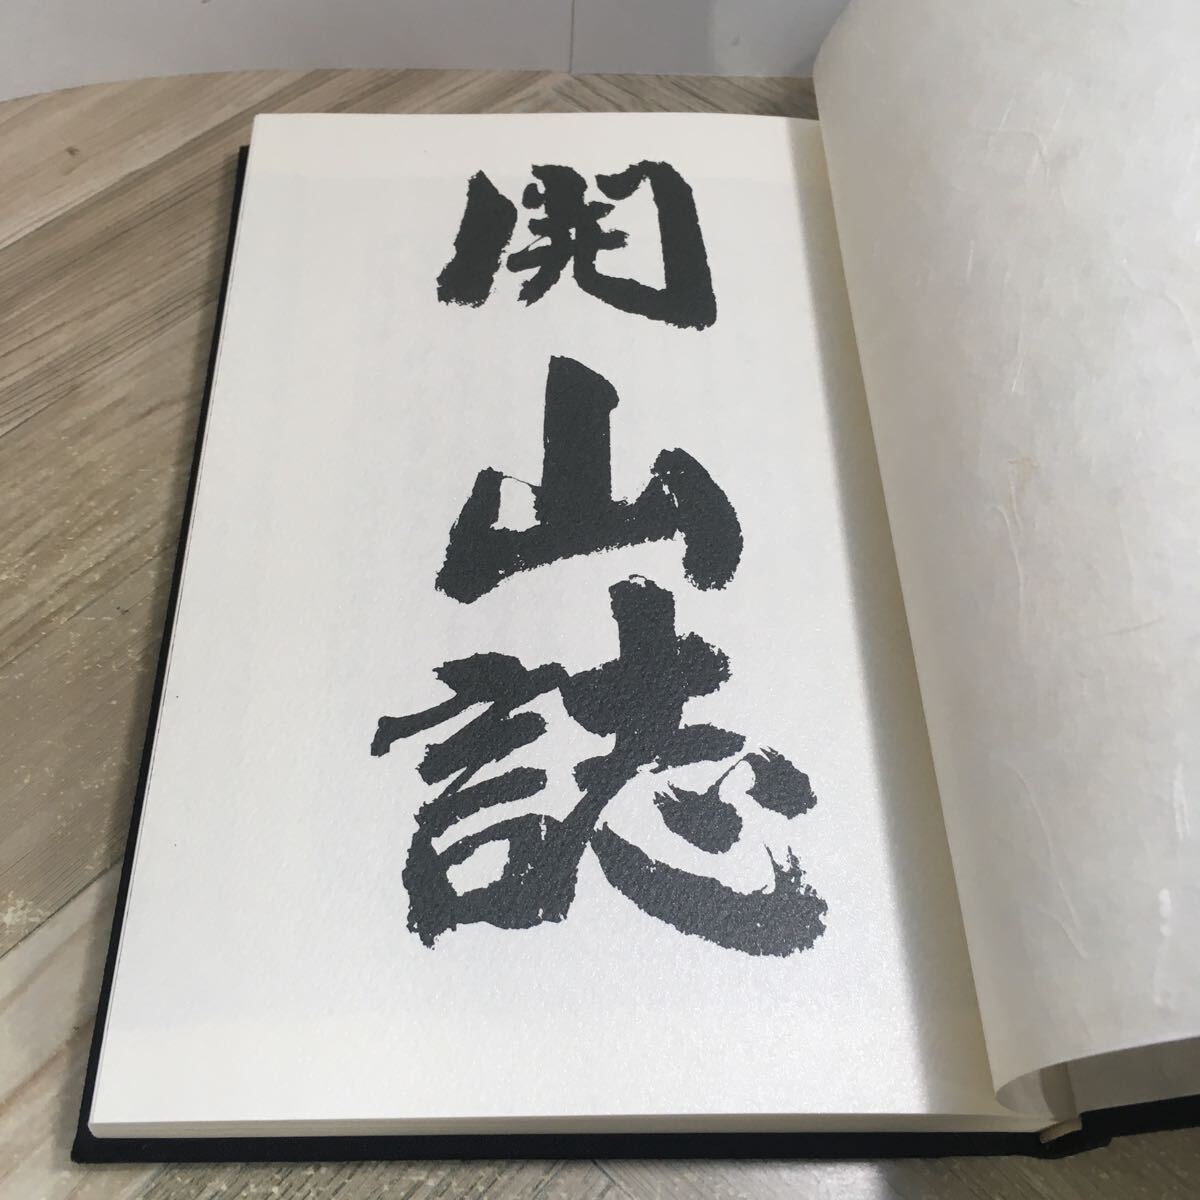 開山誌